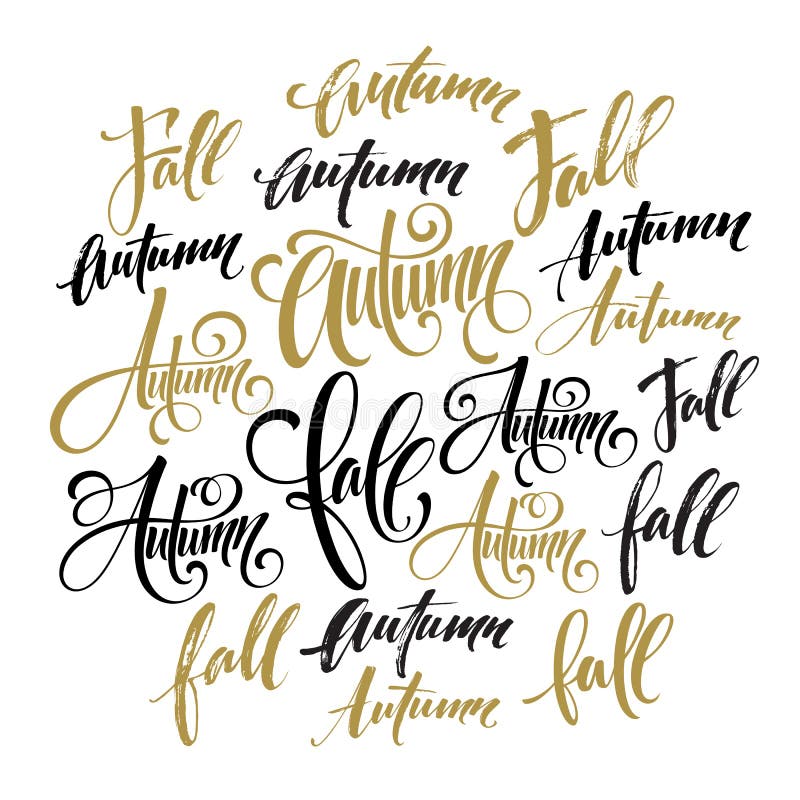 Autumn
Fall
Fall
Autumn
Autumn
Autumn
Autumn
Autumn
Autumn
Autumn
Fall
Autumn
fall
Autumn
Autumn
fall
fall
Autumn
fall
Autumn